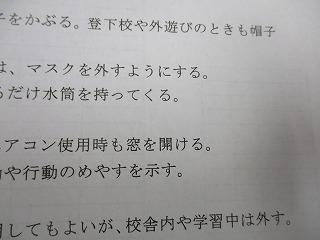 子をかぶる。登下校や外遊びのときも帽子
は、マスクを外すようにする。
るだけ水筒を持ってくる。
エアコン使用時も窓を開ける。
や行動のめやすを示す。
用してもよいが、校舎内や学習中は外す。